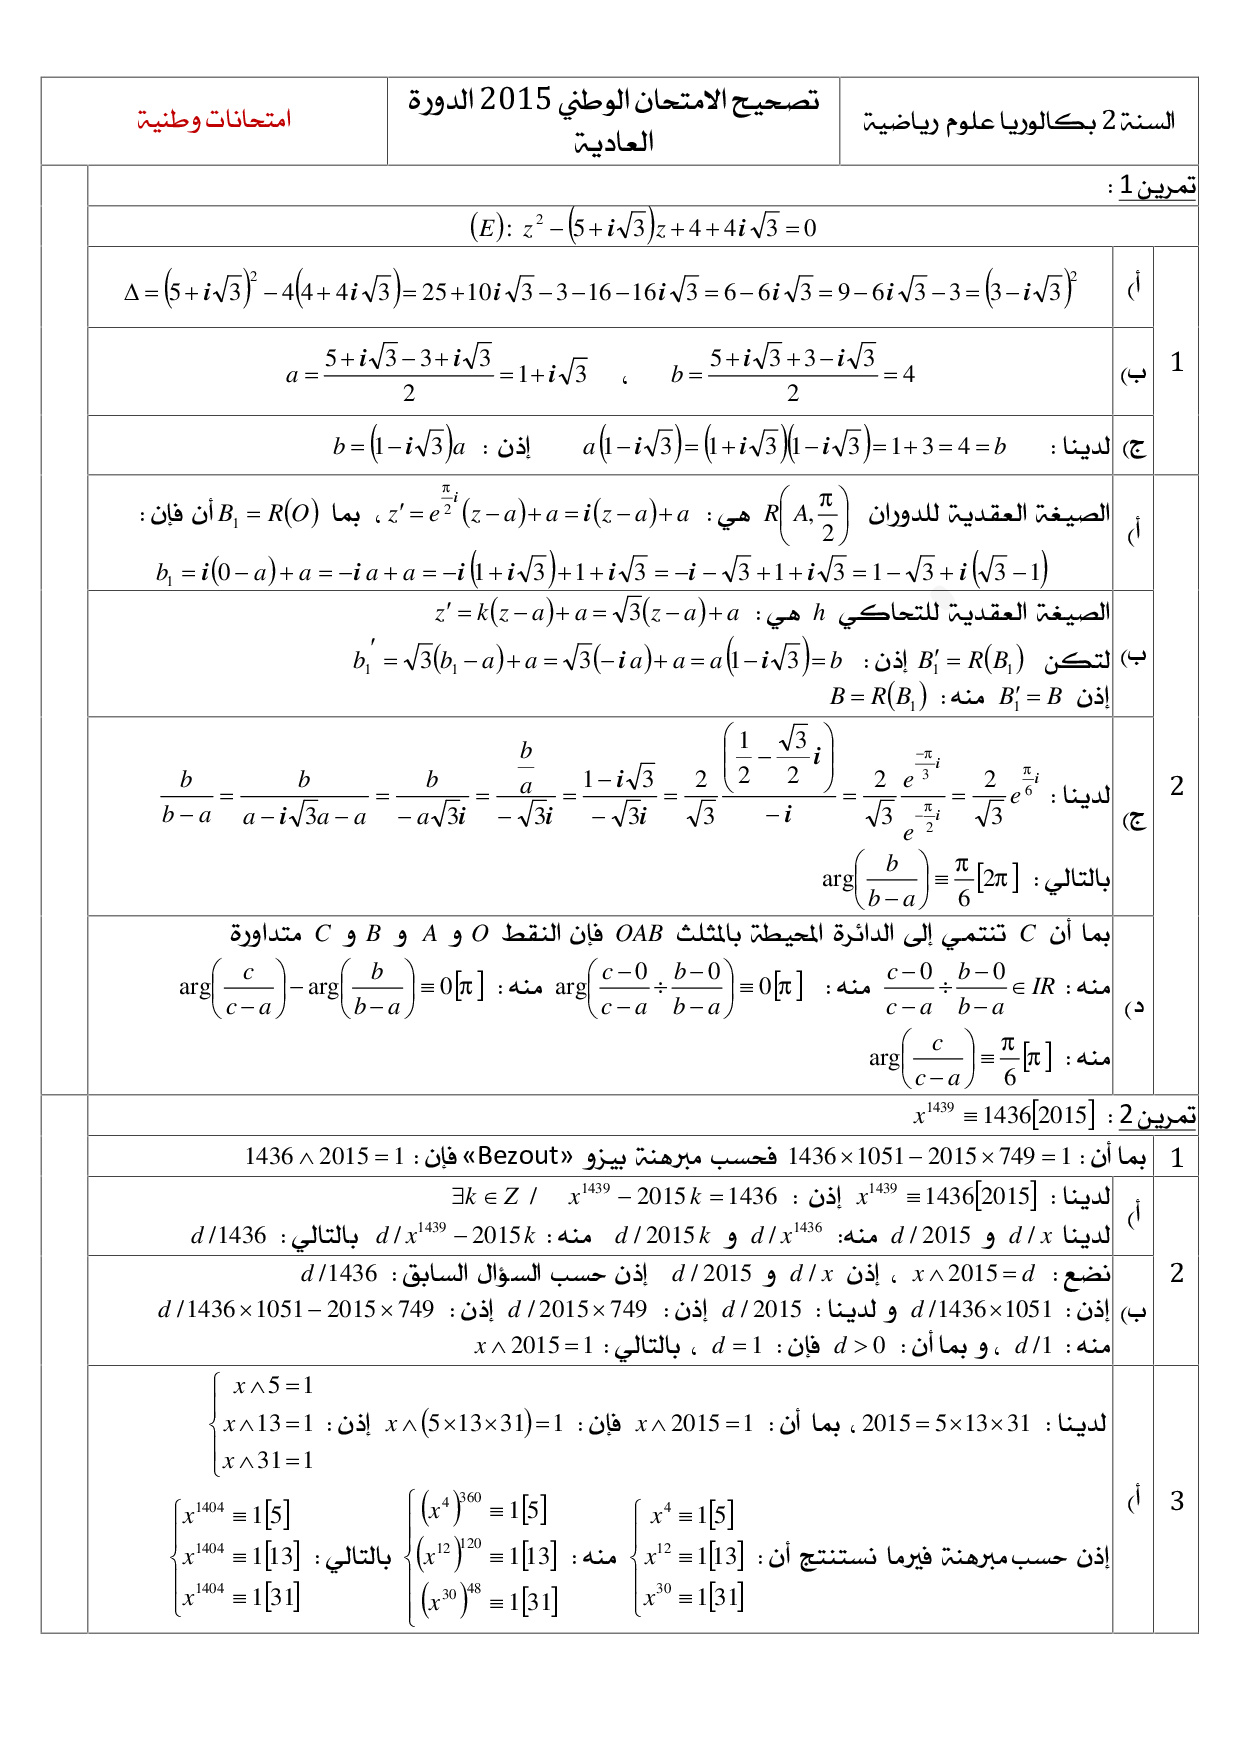 السنة 2 بكالوريا علوم رياضية
تصحيح الامتحان الوطني 2015 الدورة
العادية
امتحانات وطنية
تمرين 1 :
(E): z² − (5 + i√3)z + 4 + 4i√3 = 0
1
أ) Δ = (5 + i√3)² − 4(4 + 4i√3) = 25 + 10i√3 − 3 − 16 − 16i√3 = 6 − 6i√3 = 9 − 6i√3 − 3 = (3 − i√3)²
ب) a = (5 + i√3 − 3 + i√3)/2 = 1 + i√3 ، b = (5 + i√3 + 3 − i√3)/2 = 4
ج) لدينا : a(1 − i√3) = (1 + i√3)(1 − i√3) = 1 + 3 = 4 = b إذن : b = (1 − i√3)a
2
أ) الصيغة العقدية للدوران R(A, π/2) هي : z′ = e^(π/2 i)(z − a) + a = i(z − a) + a ، بما B₁ = R(O) أن فإن :
b₁ = i(0 − a) + a = −i a + a = −i(1 + i√3) + 1 + i√3 = −i − √3 + 1 + i√3 = 1 − √3 + i(√3 − 1)
ب) الصيغة العقدية للتحاكي h هي : z′ = k(z − a) + a = √3(z − a) + a
لتكن B₁′ = R(B₁) إذن : b₁′ = √3(b₁ − a) + a = √3(−i a) + a = a(1 − i√3) = b
إذن B₁′ = B منه : B = R(B₁)
ج) لدينا : b/(b − a) = b/(a − i√3a − a) = b/(−a√3i) = (b/a)/(−√3i) = (1 − i√3)/(−√3i) = 2/√3 (1/2 − √3/2 i)/(−i) = 2/√3 e^(−π/3 i)/e^(−π/2 i) = 2/√3 e^(π/6 i)
بالتالي : arg(b/(b − a)) ≡ π/6 [2π]
د) بما أن C تنتمي إلى الدائرة المحيطة بالمثلث OAB فإن النقط O و A و B و C متداورة
منه : (c − 0)/(c − a) ÷ (b − 0)/(b − a) ∈ IR منه : arg((c − 0)/(c − a) ÷ (b − 0)/(b − a)) ≡ 0[π] منه : arg(c/(c − a)) − arg(b/(b − a)) ≡ 0[π]
منه : arg(c/(c − a)) ≡ π/6 [π]
تمرين 2 : x^1439 ≡ 1436[2015]
1 بما أن : 1436×1051 − 2015×749 = 1 فحسب مبرهنة بيزو «Bezout» فإن : 1436 ∧ 2015 = 1
2
أ) لدينا : x^1439 ≡ 1436[2015] إذن : ∃k ∈ Z / x^1439 − 2015k = 1436
لدينا d / x و d / 2015 منه: d / x^1436 و d / 2015k منه : d / x^1439 − 2015k بالتالي : d /1436
ب) نضع : x ∧ 2015 = d ، إذن d / x و d / 2015 إذن حسب السؤال السابق : d /1436
إذن : d /1436×1051 و لدينا : d / 2015 إذن : d / 2015×749 إذن : d /1436×1051 − 2015×749
منه : d /1 ، و بما أن : d > 0 فإن : d = 1 ، بالتالي : x ∧ 2015 = 1
3
أ) لدينا : 2015 = 5×13×31 ، بما أن : x ∧ 2015 = 1 فإن : x ∧ (5×13×31) = 1 إذن : { x ∧ 5 = 1 ; x ∧ 13 = 1 ; x ∧ 31 = 1
إذن حسب مبرهنة فيرما نستنتج أن : { x^4 ≡ 1[5] ; x^12 ≡ 1[13] ; x^30 ≡ 1[31] منه : { (x^4)^360 ≡ 1[5] ; (x^12)^120 ≡ 1[13] ; (x^30)^48 ≡ 1[31] بالتالي : { x^1404 ≡ 1[5] ; x^1404 ≡ 1[13] ; x^1404 ≡ 1[31]